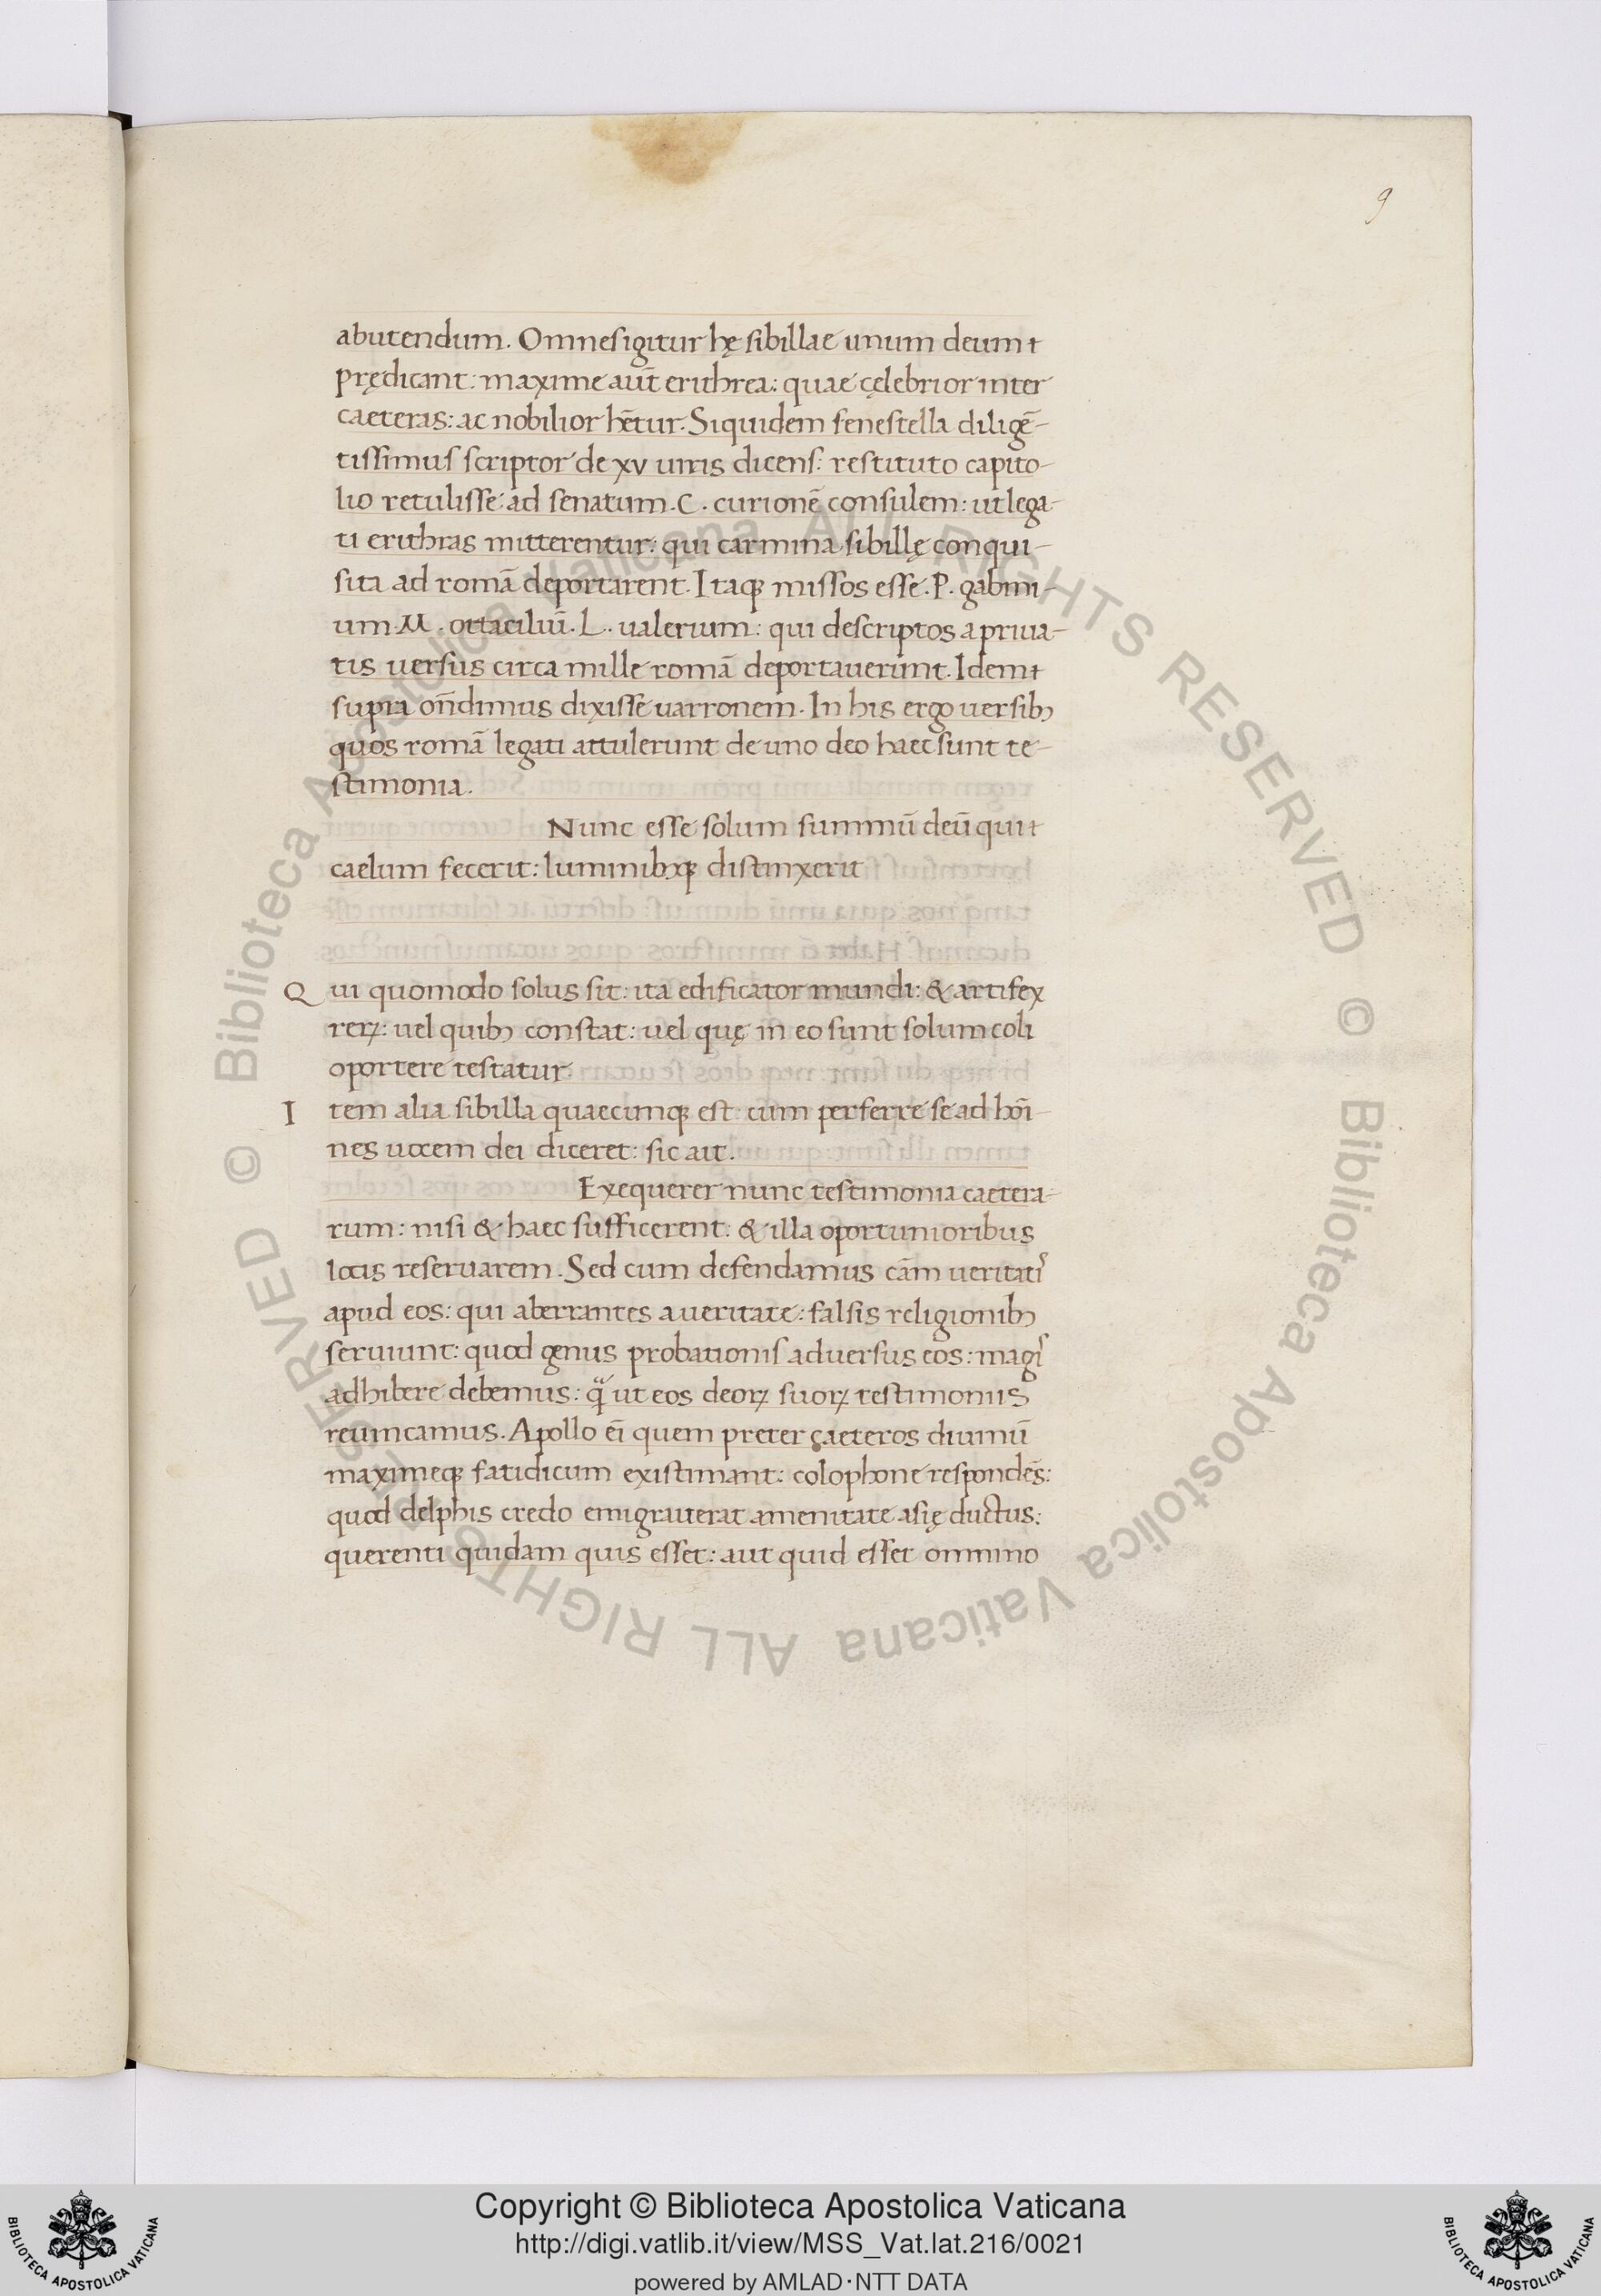 9
abutendum. Omnes igitur hę sibillae unum deum
prędicant: maxime aut̄ erithrea: quae cęlebrior inter
caeteras: ac nobilior hētur. Siquidem fenestella diligē-
tissimus scriptor de xv uiris dicens: restituto capito-
lio retulisse ad senatum. C. curionē consulem: ut lega-
ti erithras mitterentur: qui carmina sibillę conqui-
sita ad romā deportarent. Itaqꝫ missos esse. P. gabini-
um. M. ottaciliū. L. ualerium: qui descriptos a priua-
tis uersus circa mille romā deportauerunt. Idem
supra on̄dimus dixisse uarronem. In his ergo uersibꝫ
quos romā legati attulerunt de uno deo haec sunt te-
stimonia.
Nunc esse solum summū deū qui
caelum fecerit: luminibꝫqꝫ distinxerit
Qui quomodo solus sit: ita edificator mundi: & artifex
reꝝ: uel quibꝫ constat: uel quę in eo sunt solum coli
oportere testatur.
Item alia sibilla quaecunqꝫ est: cum perferre se ad hoī-
nes uocem dei diceret: sic ait.
Exequerer nunc testimonia caetera-
rum: nisi & haec sufficerent: & illa oportunioribus
locis reseruarem. Sed cum defendamus cām ueritatꝭ
apud eos: qui aberrantes a ueritate: falsis religionibꝫ
seruiunt: quod genus probationis aduersus eos: magꝭ
adhibere debemus: qᷓ ut eos deoꝝ suoꝝ testimoniis
reuincamus. Apollo ēi quem preter çaeteros diuinū
maximeqꝫ fatidicum existimant: colophone respondēs:
quod delphis credo emigrauerat amenitate asię ductus:
querenti quidam quis esset: aut quid esset omnino
Copyright © Biblioteca Apostolica Vaticana
http://digi.vatlib.it/view/MSS_Vat.lat.216/0021
powered by AMLAD·NTT DATA
BIBLIOTECA APOSTOLICA VATICANA
BIBLIOTECA APOSTOLICA VATICANA
© Biblioteca Apostolica Vaticana ALL RIGHTS RESERVED
© Biblioteca Apostolica Vaticana ALL RIGHTS RESERVED